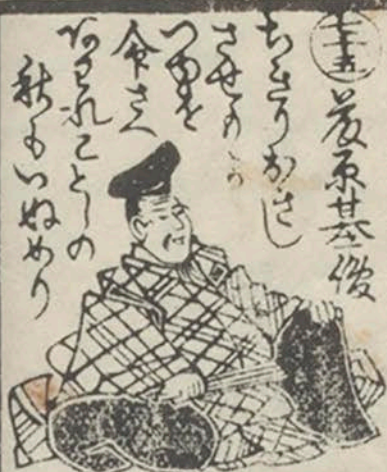 七十五
藤原基俊
ちきりおきし
させもか
つゆを
命にて
あはれことしの
秋もいぬめり